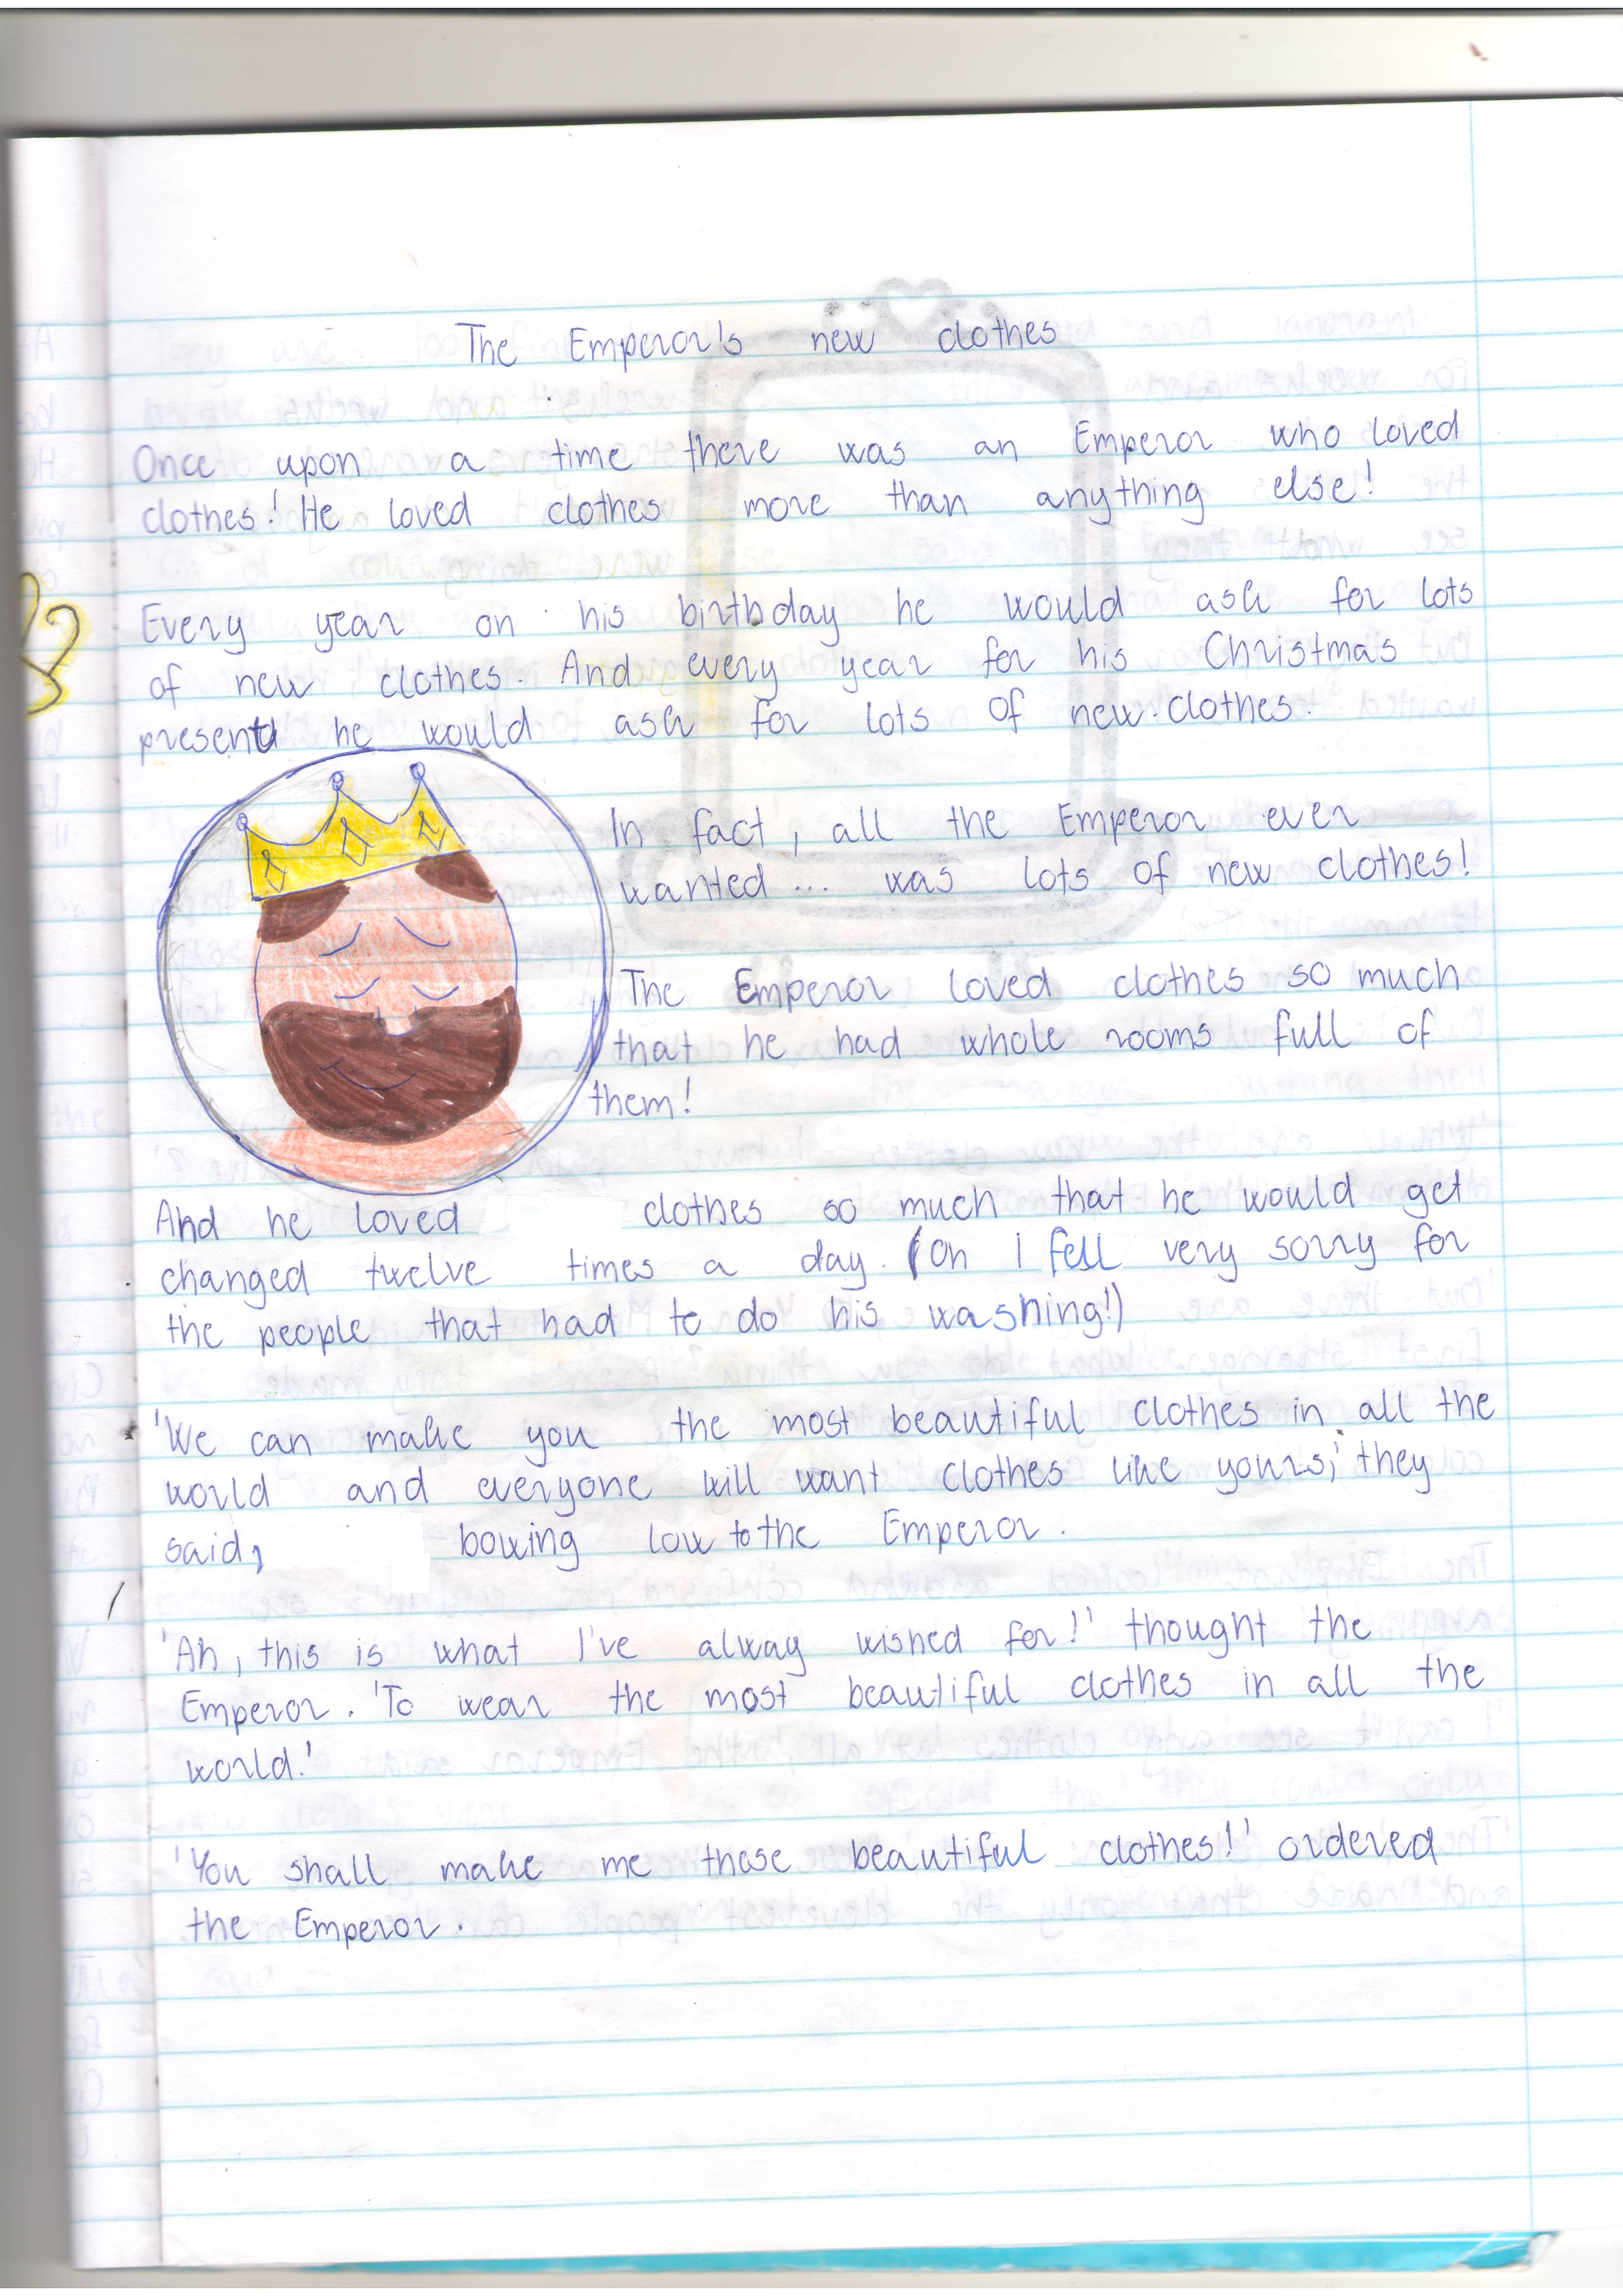 The Emperor's new clothes
Once upon a time there was an Emperor who loved
clothes! He loved clothes more than anything else!
Every year on his birthday he would ask for lots
of new clothes. And every year for his Christmas
present he would ask for lots of new clothes.
In fact, all the Emperor ever
wanted... was lots of new clothes!
The Emperor loved clothes so much
that he had whole rooms full of
them!
And he loved clothes so much that he would get
changed twelve times a day. (Oh I fell very sorry for
the people that had to do his washing!)
'We can make you the most beautiful clothes in all the
world and everyone will want clothes like yours,' they
said, bowing low to the Emperor.
'Ah, this is what I've alway wished for!' thought the
Emperor. 'To wear the most beautiful clothes in all the
world.'
'You shall make me these beautiful clothes!' ordered
the Emperor.